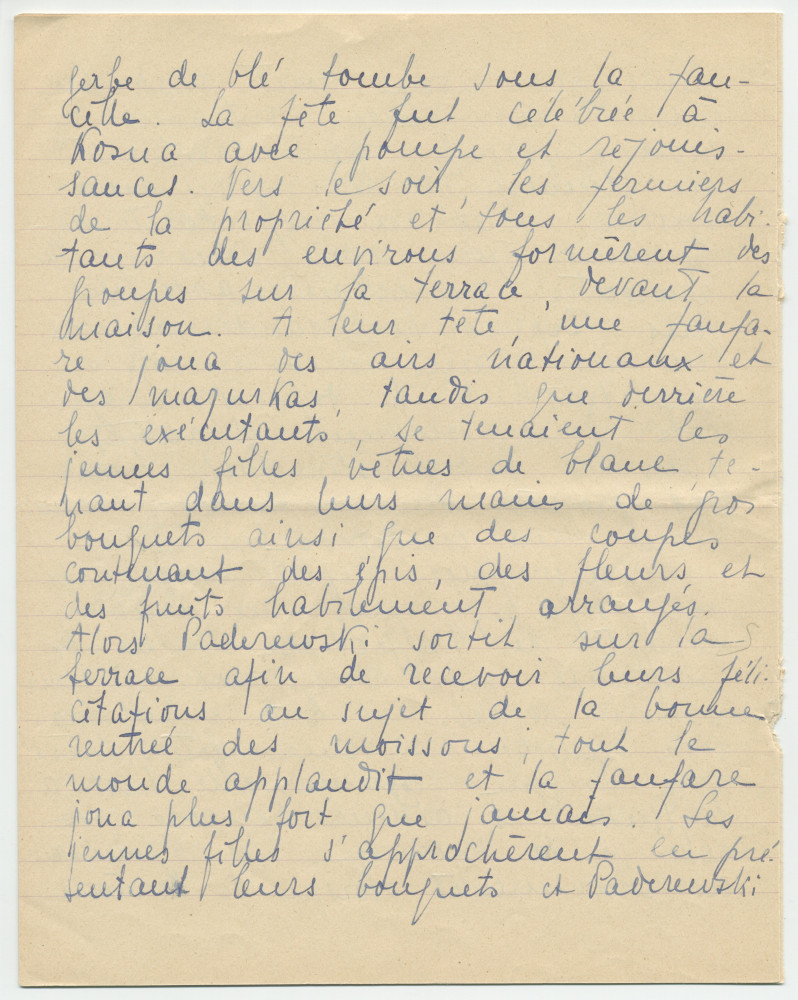 gerbe de blé tombe sous la fau-
cille. La fête fut célébrée à
Kosna avec pompe et réjouis-
sances. Vers le soir, les fermiers
de la propriété et tous les habi-
tants des environs formèrent des
groupes sur la terrace, devant la
maison. A leur tête une fanfa-
re joua des airs nationaux et
des mazurkas, tandis que derrière
les exécutants, se tenaient les
jeunes filles vêtues de blanc, te-
nant dans leurs mains de gros
bouquets ainsi que des coupes
contenant des épis, des fleurs et
des fruits habilement arrangés.
Alors Paderewski sortit sur la
terrace afin de recevoir leurs féli-
citations au sujet de la bonne
rentrée des moissons; tout le
monde applaudit et la fanfare
joua plus fort que jamais. Les
jeunes filles s'approchèrent en pré-
sentant leurs bouquets et Paderewski